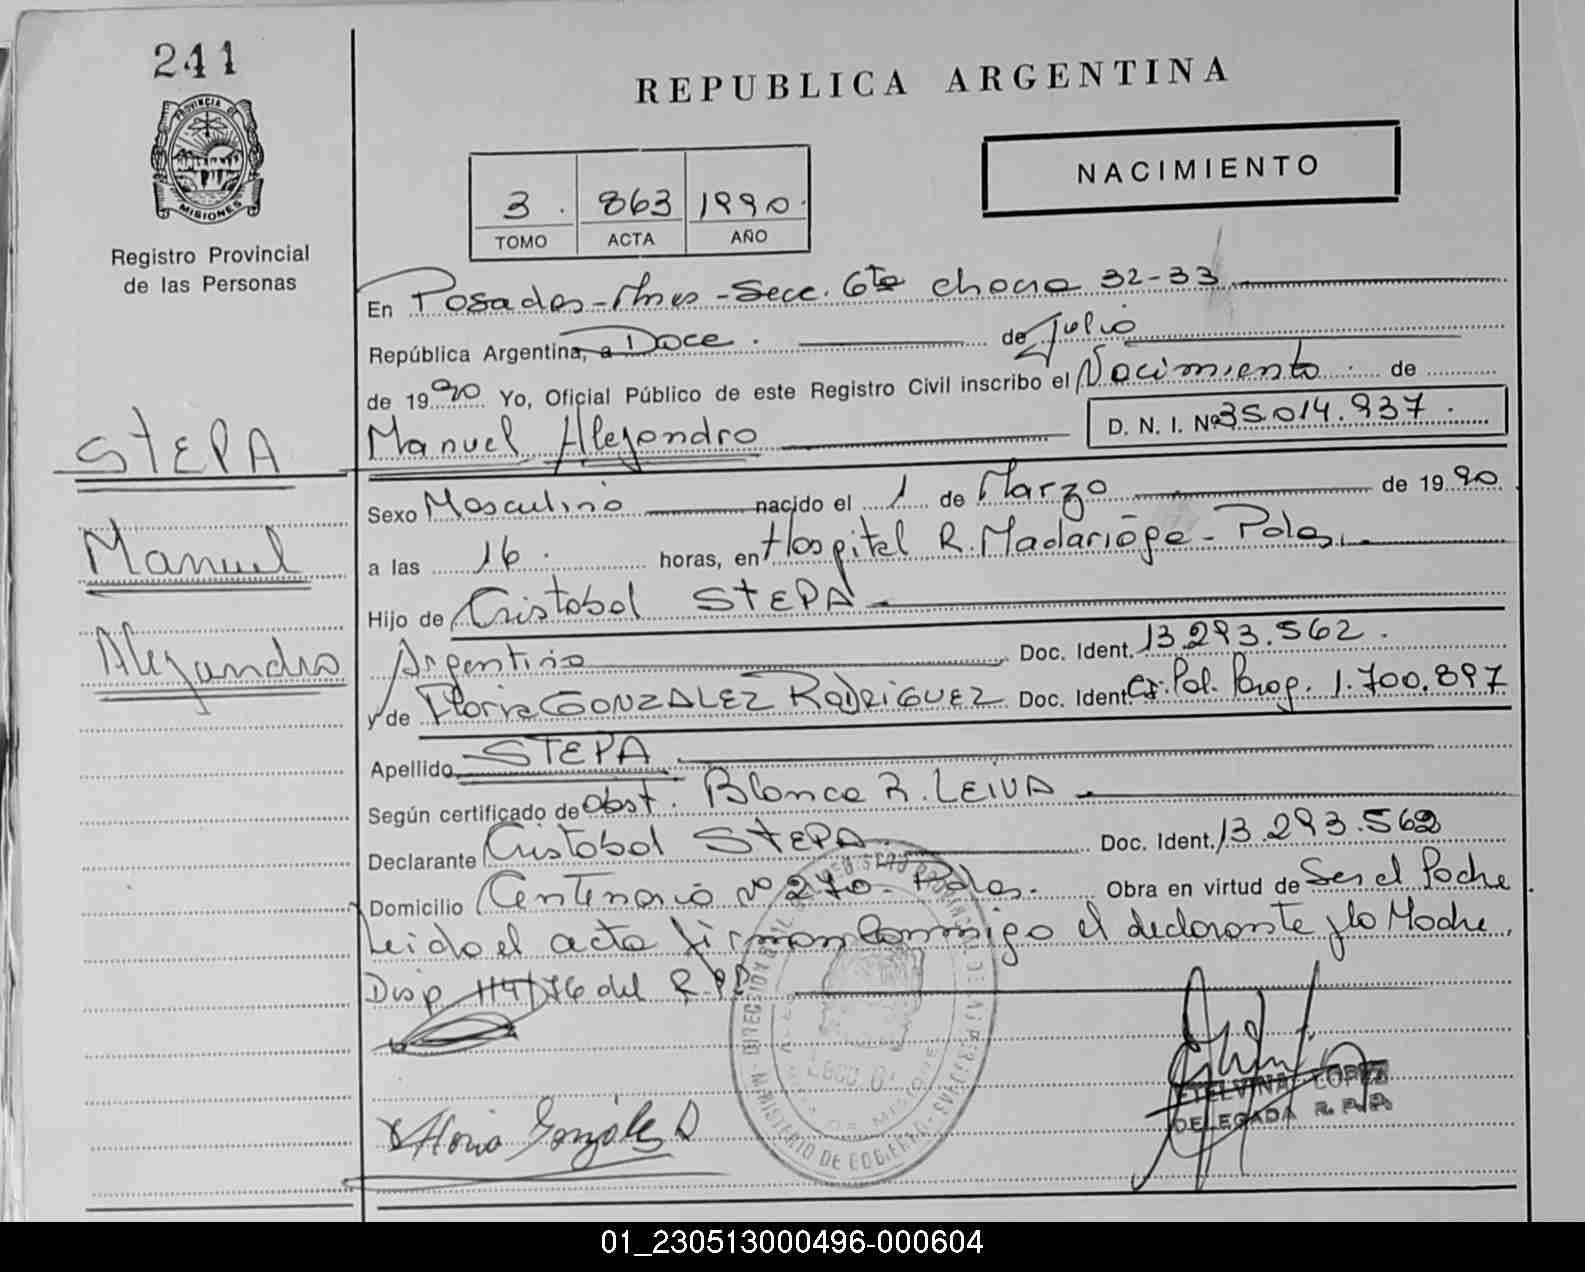 241
REPUBLICA ARGENTINA
PROVINCIA DE
MISIONES
Registro Provincial
de las Personas
NACIMIENTO
3. 863 1990.
TOMO ACTA AÑO
En Posadas-Mnes-Secc. 6ta chacra 32-33
República Argentina, a Doce. de Julio
de 1990 Yo, Oficial Público de este Registro Civil inscribo el Nacimiento de
Manuel Alejandro D. N. I. Nº 35.014.937.
STEPA
Manuel
Alejandro
Sexo Masculino nacido el 1 de Marzo de 1990
a las 16. horas, en Hospital R. Madariaga- Pdas.
Hijo de Cristobal STEPA
Argentino Doc. Ident. 13.293.562.
y de Floria GONZALEZ RODRIGUEZ Doc. Ident. Pol. Parag. 1.700.897
Apellido STEPA
Según certificado de obst. Blanca R. LEIVA
Declarante Cristobal STEPA Doc. Ident. 13.293.562
Domicilio Centenario Nº 270- Pdas. Obra en virtud de Ser el Padre
Leido el acta firman conmigo el declarante y la Madre.
Disp. 114/76 del R.P.P.
Floria González
ETELVINA LOPEZ
DELEGADA R.P.P.
01_230513000496-000604